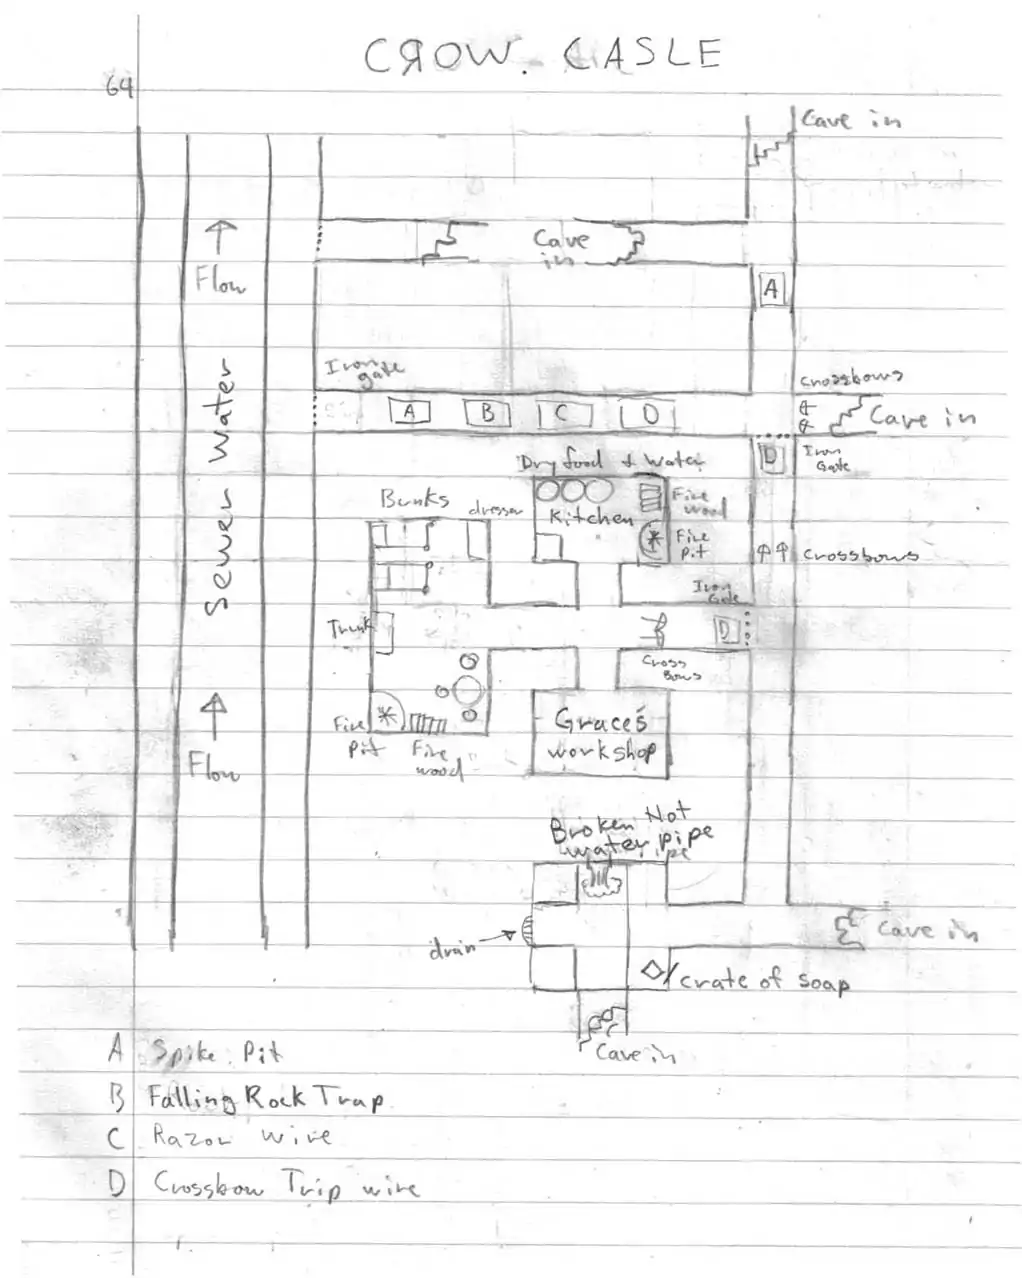 CROW. CASLE
64
Cave in
Flow
Cave
in
A
Iron
gate
Crossbows
A
B
C
D
Cave in
Sewer Water
D
Iron
Gate
Dry food & Water
Bunks
dresser
Kitchen
Fire
wood
Fire
pit
Crossbows
Iron
Gate
Trunk
D
Cross
Bows
Fire
pit
Fire
wood
Grace's
workshop
Flow
Broken Hot
water pipe
drain
Cave in
crate of soap
Cave in
A Spike Pit
B Falling Rock Trap
C Razor wire
D Crossbow Trip wire